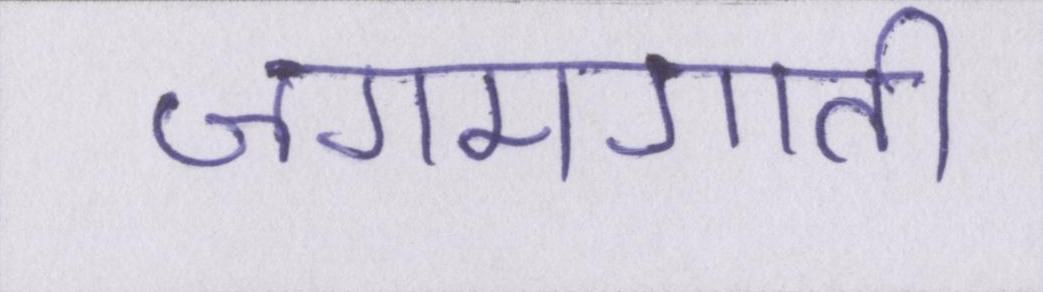 जगमगाती